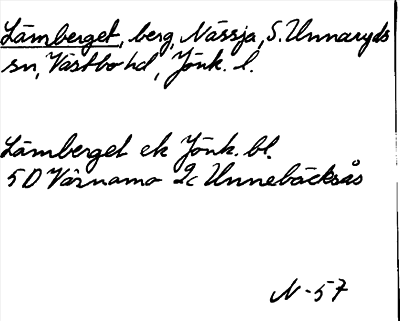 Lämberget, berg, Nässja, S. Unnaryds
sn, Västbo hd, Jönk. l.
Lämberget ek Jönk. bl.
5D Värnamo 2c Unnebäcksås
N-57